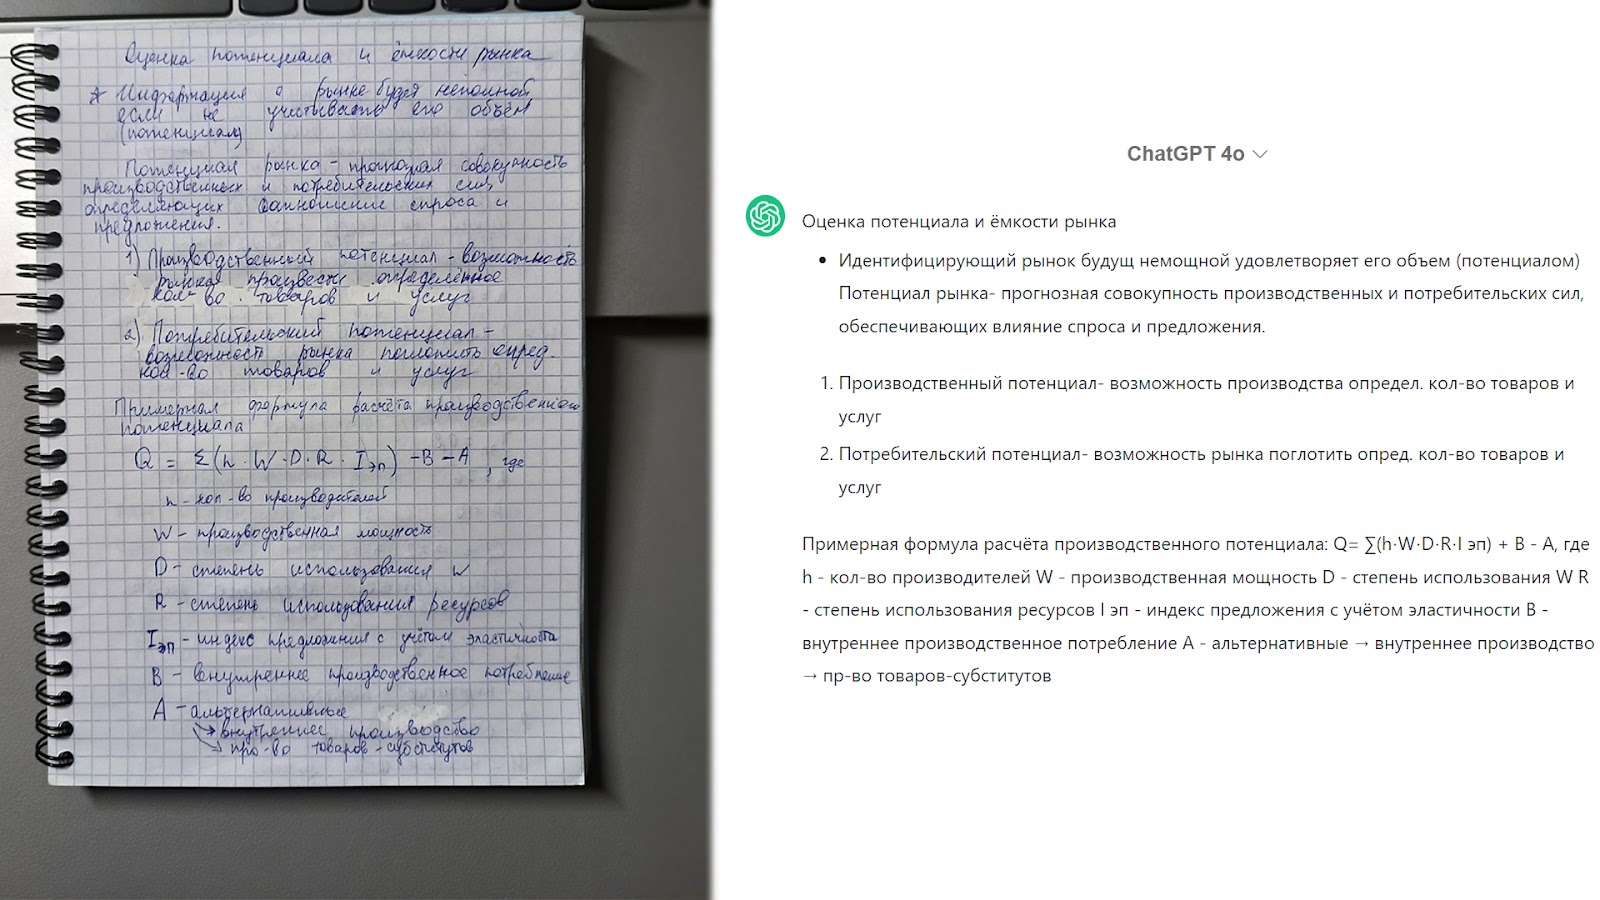 Оценка потенциала и ёмкости рынка
* Информация о рынке будет неполной
если не учитывать его объём
(потенциал)
Потенциал рынка - прогнозная совокупность
производственных и потребительских сил,
определяющих соотношение спроса и
предложения.
1) Производственный потенциал - возможность
рынка произвести определённое
кол-во товаров и услуг
2) Потребительский потенциал -
возможность рынка поглотить опред.
кол-во товаров и услуг
Примерная формула расчёта производственного
потенциала
Q = Σ(n·W·D·R·Iэп) - B - A, где
n - кол-во производителей
W - производственная мощность
D - степень использования W
R - степень использования ресурсов
Iэп - индекс предложения с учётом эластичности
B - внутреннее производственное потребление
A - альтернативные
→ внутреннее производство
→ пр-во товаров-субститутов
ChatGPT 4o
Оценка потенциала и ёмкости рынка
• Идентифицирующий рынок будущ немощной удовлетворяет его объем (потенциалом)
Потенциал рынка- прогнозная совокупность производственных и потребительских сил,
обеспечивающих влияние спроса и предложения.
1. Производственный потенциал- возможность производства определ. кол-во товаров и
услуг
2. Потребительский потенциал- возможность рынка поглотить опред. кол-во товаров и
услуг
Примерная формула расчёта производственного потенциала: Q= ∑(h·W·D·R·I эп) + B - A, где
h - кол-во производителей W - производственная мощность D - степень использования W R
- степень использования ресурсов I эп - индекс предложения с учётом эластичности B -
внутреннее производственное потребление A - альтернативные → внутреннее производство
→ пр-во товаров-субститутов